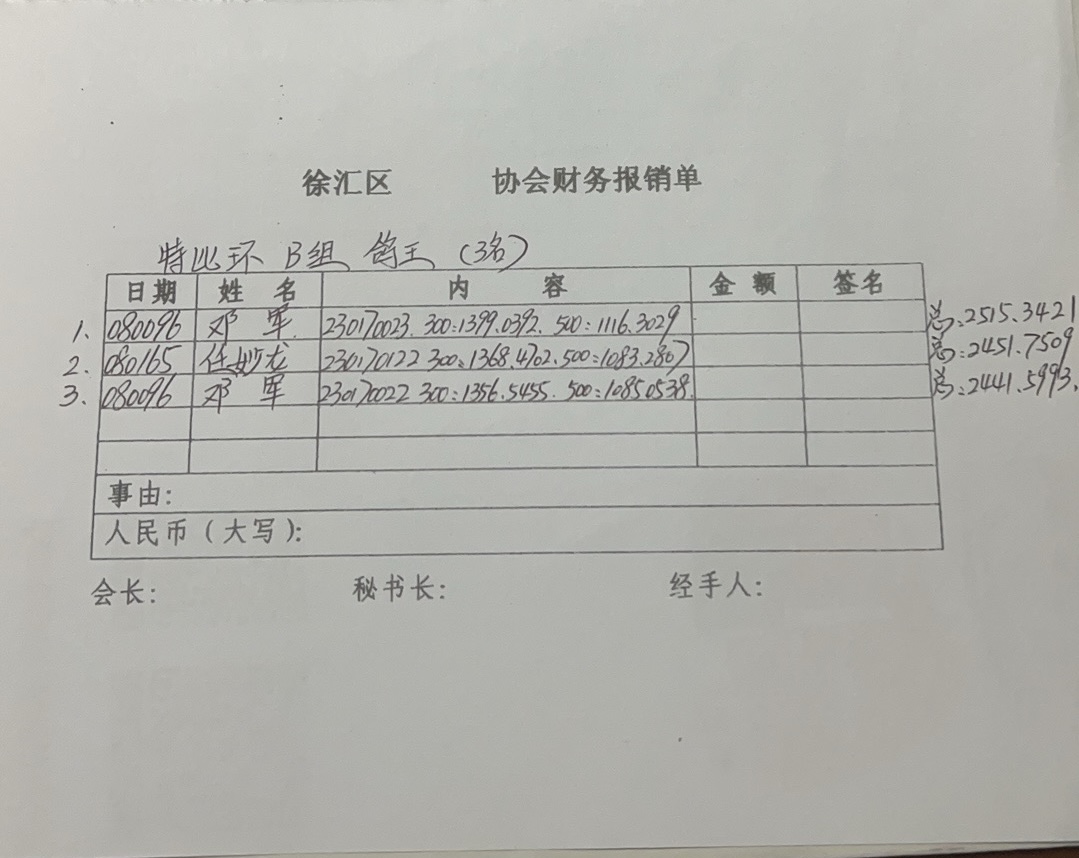 徐汇区 协会财务报销单
特比环 B组 鸽王 (3名)
日期 姓 名 内 容 金 额 签名
1、 080096 邓 军 230170023. 300:1399.0392. 500:1116.3029 总:2515.3421
2、 080165 任妙龙 230170122 300:1368.4702.500:1083.2807 总:2451.7509
3、 080096 邓 军 230170022 300:1356.5455. 500:10850538. 总:2441.5993.
事由:
人民币(大写):
会长: 秘书长: 经手人: